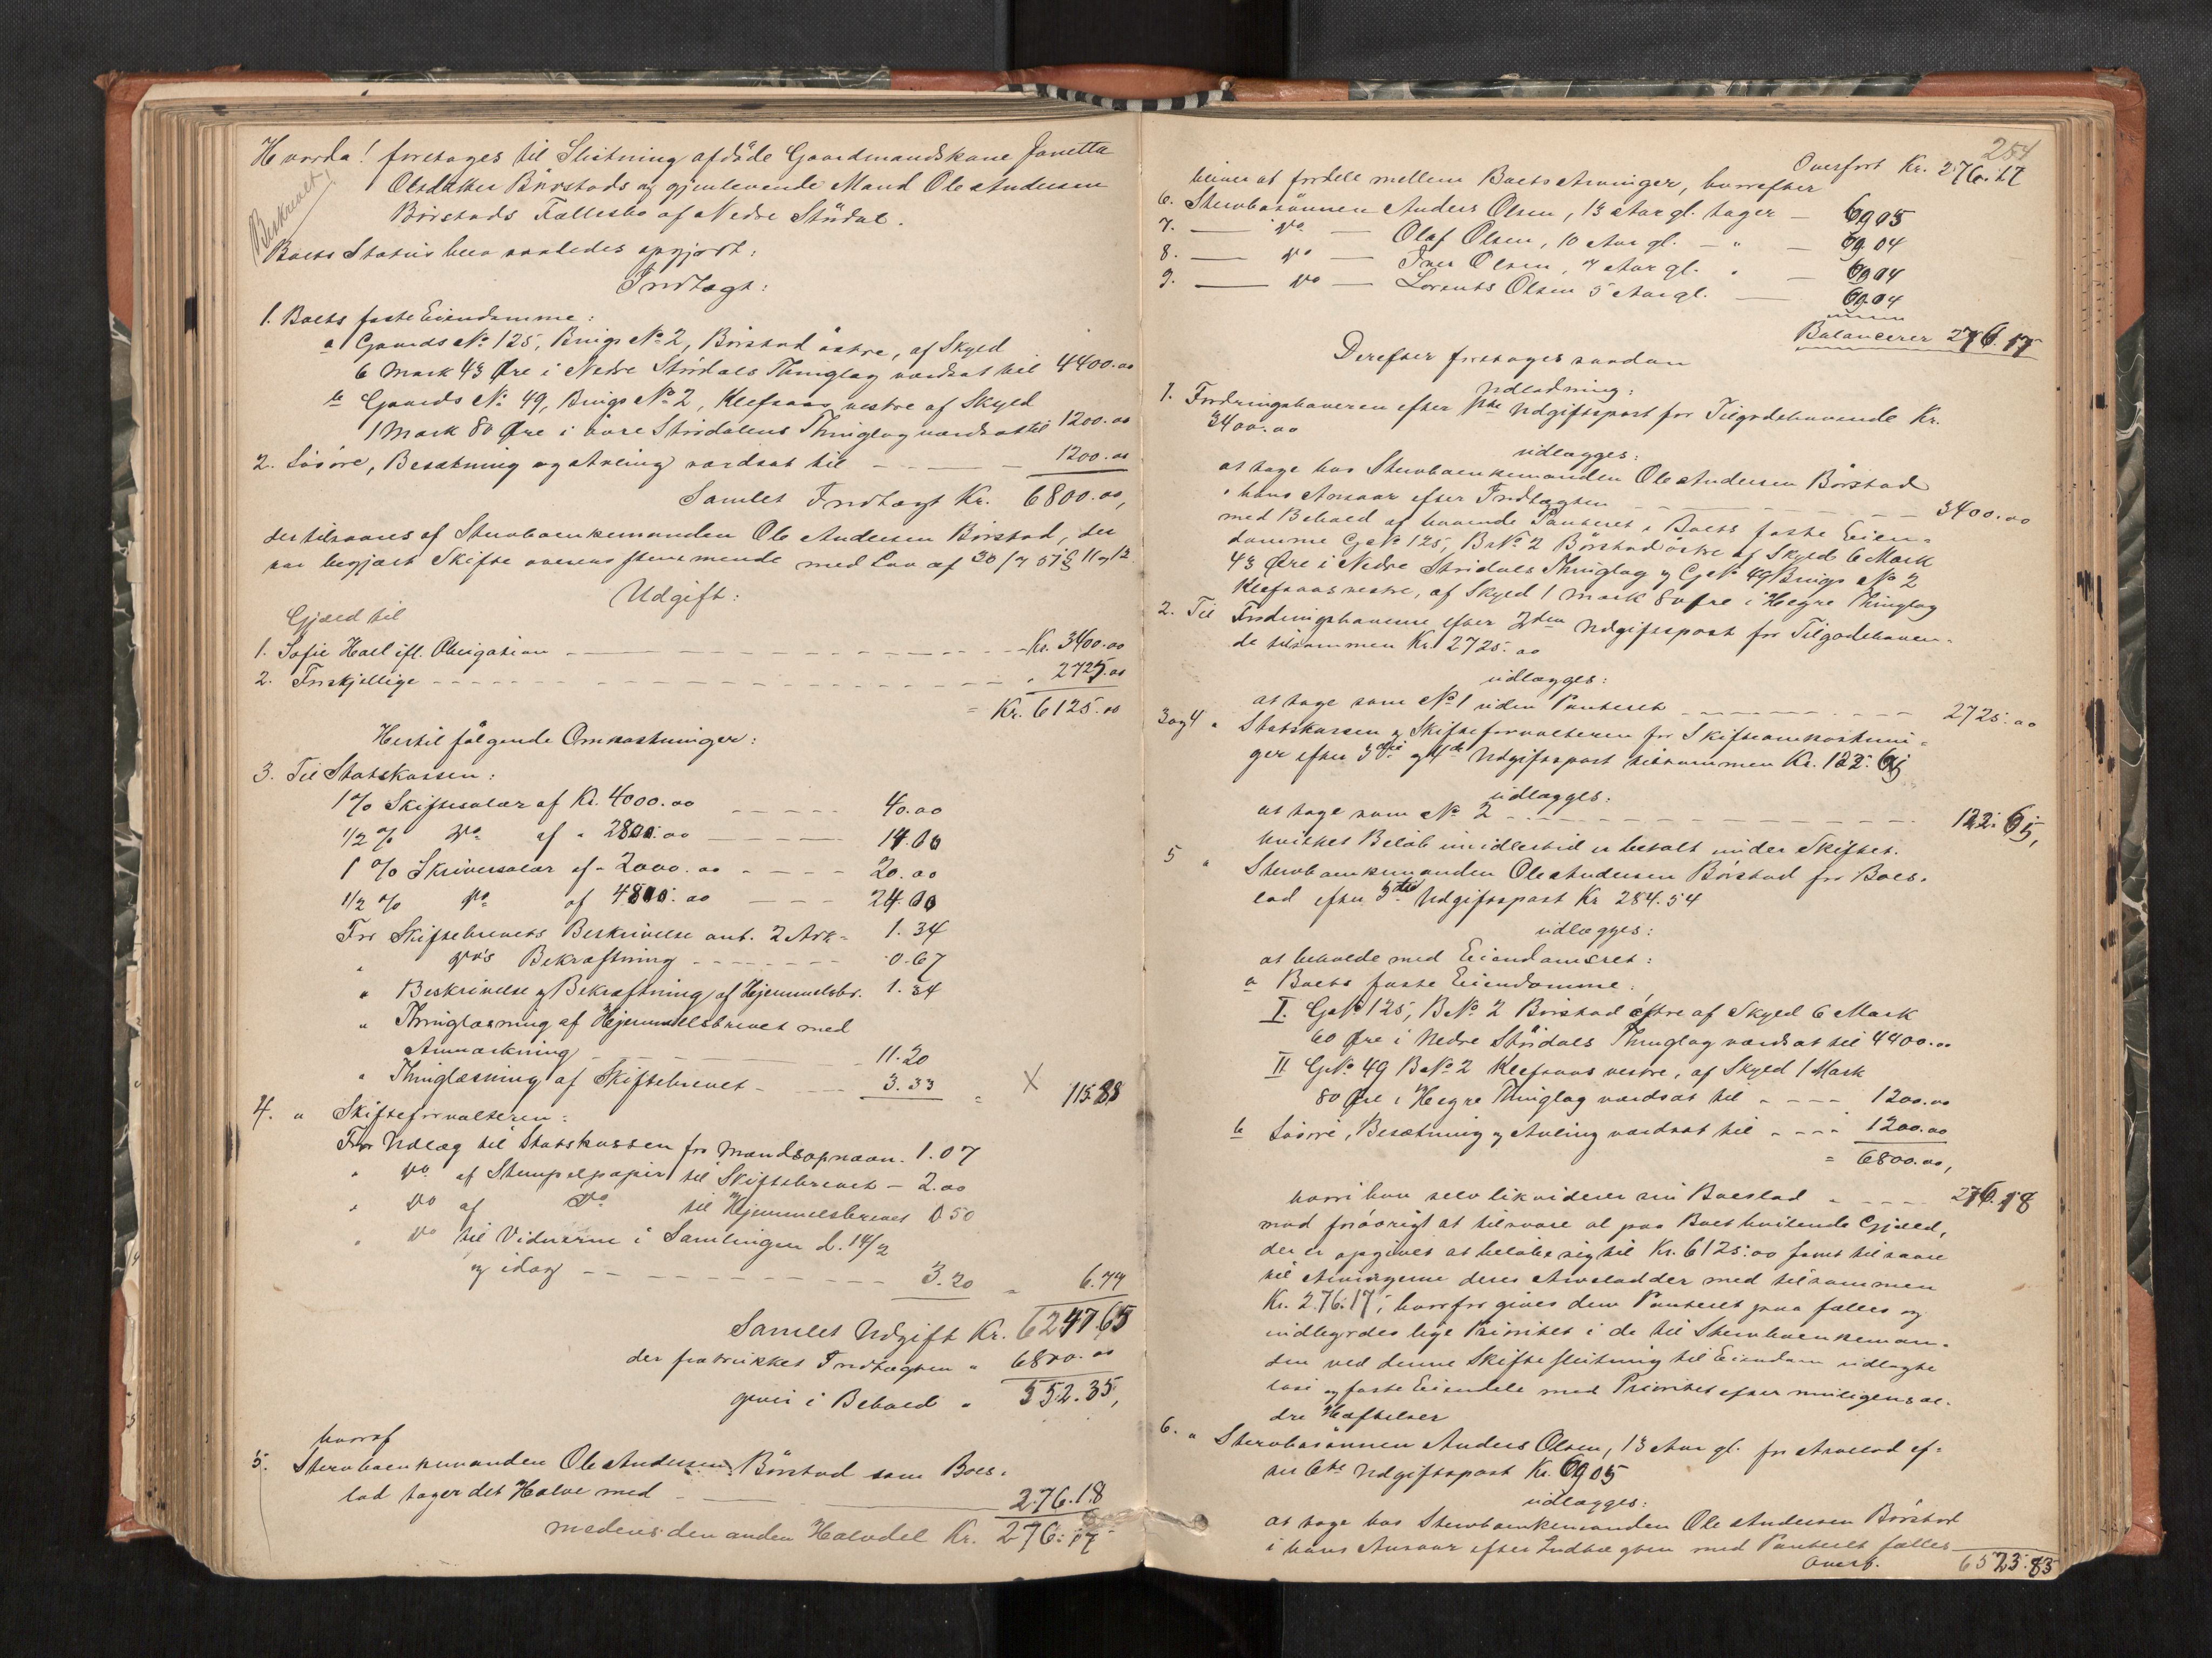 Hvorda! foretages til Slutning afdöde Gaardmandskone Jonetta
Olsdatter Börstads og gjenlevende Mand Ole Andersen
Börstads Fællesbo af Nedre Stördal.
Beskrevet,
Boets Status blev saaledes opgjort:
Indtægt:
1. Boets faste Eiendomme:
a Gaards No 125, Brugs No 2, Börstad östre, af Skyld
6 Mark 43 Öre i Nedre Stördals Thinglag værdsat til 4400.00
b Gaards No 49, Brugs No 2, Klefsaas vestre af Skyld
1 Mark 80 Öre i övre Stördalens Thinglag værdsat til 1200.00
2. Lösöre, Besætning og Avling værdsat til 1200.00
Samlet Indtægt Kr. 6800.00,
der tilsvares af Stervboenkemanden Ole Andersen Börstad, der
har begjært Skifte overensstemmende med Lov af 30/7 51 §§ 11 og 12
Udgift:
Gjæld til
1. Sofie Hoel ifl. Obligation Kr. 3400.00
2. Forskjellige " 2725.00
= Kr. 6125.00
Hertil fölgende Omkostninger:
3. Til Statskassen:
1% Skiftesalær af Kr. 4000.00 40.00
1/2 % do af " 2800.00 14.00
1 % Skriversalær af " 2000.00 20.00
1/2 % do af 4800.00 24.00
For Skiftebrevets Beskrivelse ant. 2 Ark 1.34
" do's Bekræftning 0.67
" Beskrivelse og Bekræftning af Hjemmelsbr. 1.34
" Thinglæsning af Hjemmelsbrevet med
Anmærkning 11.20
" Thinglæsning af Skiftebrevet 3.33 = X 115.88
4. " Skifteforvalteren:
For Udlæg til Statskassen for Mandsopnævn. 1.07
" do af Stempelpapir til Skiftebrevet 2.00
" do af do til Hjemmelsbrevet 0 50
" do til Vidnerne i Samlingen d. 14/2
og idag 3.20 " 6.77
Samlet Udgift Kr. 6247.65
der fratrukket Indtægten " 6800.00
giver i Behold " 552.35,
hvoraf
5. Stervboenkemanden Ole Andersen Börstad som Boes-
lod tager det Halve med 276.18
medens den anden Halvdel Kr. 276.17
254
Overfört Kr. 276.17
bliver at fordele mellem Boets Arvinger, hvorefter
6. Stervbosönnen Anders Olsen, 13 Aar gl. tager 69 05
7. do Olaf Olsen, 10 Aar gl. " 69.04
8. do Iver Olsen, 7 Aar gl. " 69 04
9. do Lorents Olsen 5 Aar gl. 69.04
Balancerer 276.17
Derefter foretages saadan
Udlodning:
1. Fordringshaveren efter 1ste Udgiftspost for Tilgodehavende Kr.
3400.00
udlægges:
at tage hos Stervboenkemanden Ole Andersen Börstad
i hans Ansvar efter Indtægten 3400.00
med Behold af havende Panteret i Boets faste Eien-
domme G. No 125, B. No 2 Börstad östre af Skyld 6 Mark
43 Öre i Nedre Stördals Thinglag og G. No 49 Brugs No 2
Klefsaas vestre, af Skyld 1 Mark 80 Öre i Hegre Thinglag
2. Til Fordringshaverne efter 2den Udgiftspost for Tilgodehaven-
de tilsammen Kr. 2725.00
udlægges:
at tage som No 1 uden Panteret 2725.00
3 og 4 " Statskassen og Skifteforvalteren for Skifteomkostnin-
ger efter 3die og 4de Udgiftspost tilsammen Kr. 122.65
udlægges:
at tage som No 2 122.65,
hvilket Belöb imidlertid er betalt under Skiftet.
5 " Stervboenkemanden Ole Andersen Börstad for Boes-
lod efter 5te Udgiftspost Kr 284.54
udlægges:
at beholde med Eiendomsret:
a Boets faste Eiendomme:
I. G. No 125, B. No 2 Börstad östre af Skyld 6 Mark
60 Öre i Nedre Stördals Thinglag værdsat til 4400.00
II G. No 49 B. No 2 Klefsaas vestre, af Skyld 1 Mark
80 Öre i Hegre Thinglag værdsat til 1200.00
b Lösöre, Besætning og Avling værdsat til 1200.00
= 6800.00,
hvori han selv likviderer sin Boeslod 276.18
mod forövrigt at tilsvare al paa Boet hvilende Gjæld,
der er opgivet at belöbe sig til Kr. 6125.00 samt tilsvare
til Arvingerne deres Arvelodder med tilsammen
Kr. 276.17, hvorfor gives dem Panteret paa fælles og
indbyrdes lige Prioritet i de til Stervboenkeman-
den ved denne Skifteslutning til Eiendom udlagte
löse og faste Eiendele med Prioritet efter muligens æl-
dre Hæftelser
6. " Stervbosönnen Anders Olsen, 13 Aar gl. for Arvelod ef-
ter 6te Udgiftspost Kr. 69 05
udlægges:
at tage hos Stervboenkemanden Ole Andersen Börstad
i hans Ansvar efter Indtægten med Panteret fælles
Overf. 6523.83